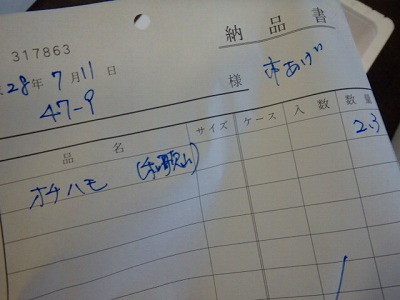 納品書
317863
28年7月11日
様 市あげ
47-9
品名 サイズ ケース 入数 数量
オチハモ (和歌山) 2.3